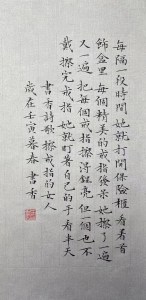 每隔一段時間她就打開保險櫃看看首
飾盒里每個精美的戒指發呆她擦了一遍
又一遍把每個戒指擦得錚亮但一個也不
戴擦完戒指她就盯著自己的手看半天
書香詩歌擦戒指的女人
歲在壬寅暮春書香